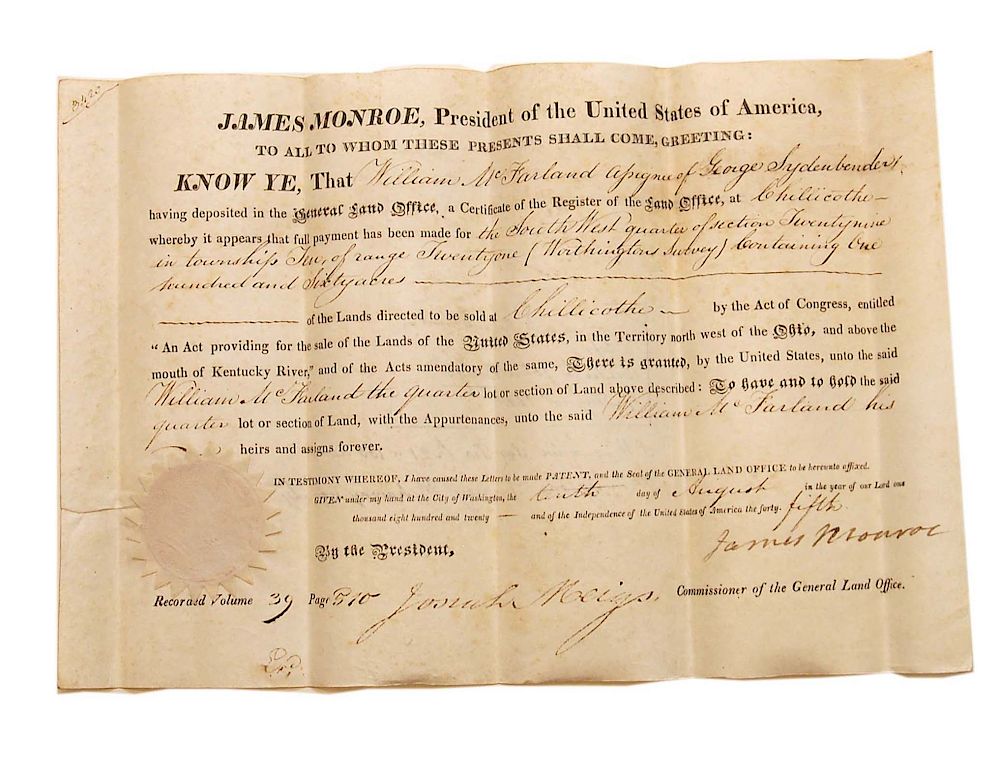 JAMES MONROE, President of the United States of America,
TO ALL TO WHOM THESE PRESENTS SHALL COME, GREETING:
KNOW YE, That William McFarland assignee of George Sydenbender
having deposited in the General Land Office, a Certificate of the Register of the Land Office, at Chillicothe —
whereby it appears that full payment has been made for the South West quarter of section Twentynine
in township Ten, of range Twentyone (Worthingtons survey) Containing One
hundred and Sixty acres
of the Lands directed to be sold at Chillicothe — by the Act of Congress, entitled
"An Act providing for the sale of the Lands of the United States, in the Territory north west of the Ohio, and above the
mouth of Kentucky River," and of the Acts amendatory of the same, There is granted, by the United States, unto the said
William McFarland the quarter lot or section of Land above described: To have and to hold the said
quarter lot or section of Land, with the Appurtenances, unto the said William McFarland his
heirs and assigns forever.
IN TESTIMONY WHEREOF, I have caused these Letters to be made PATENT, and the Seal of the GENERAL LAND OFFICE to be hereunto affixed.
GIVEN under my hand at the City of Washington, the tenth day of August in the year of our Lord one
thousand eight hundred and twenty — and of the Independence of the United States of America the forty-fifth.
James Monroe
By the President,
Recorded Volume 39 Page 310 Josiah Meigs, Commissioner of the General Land Office.